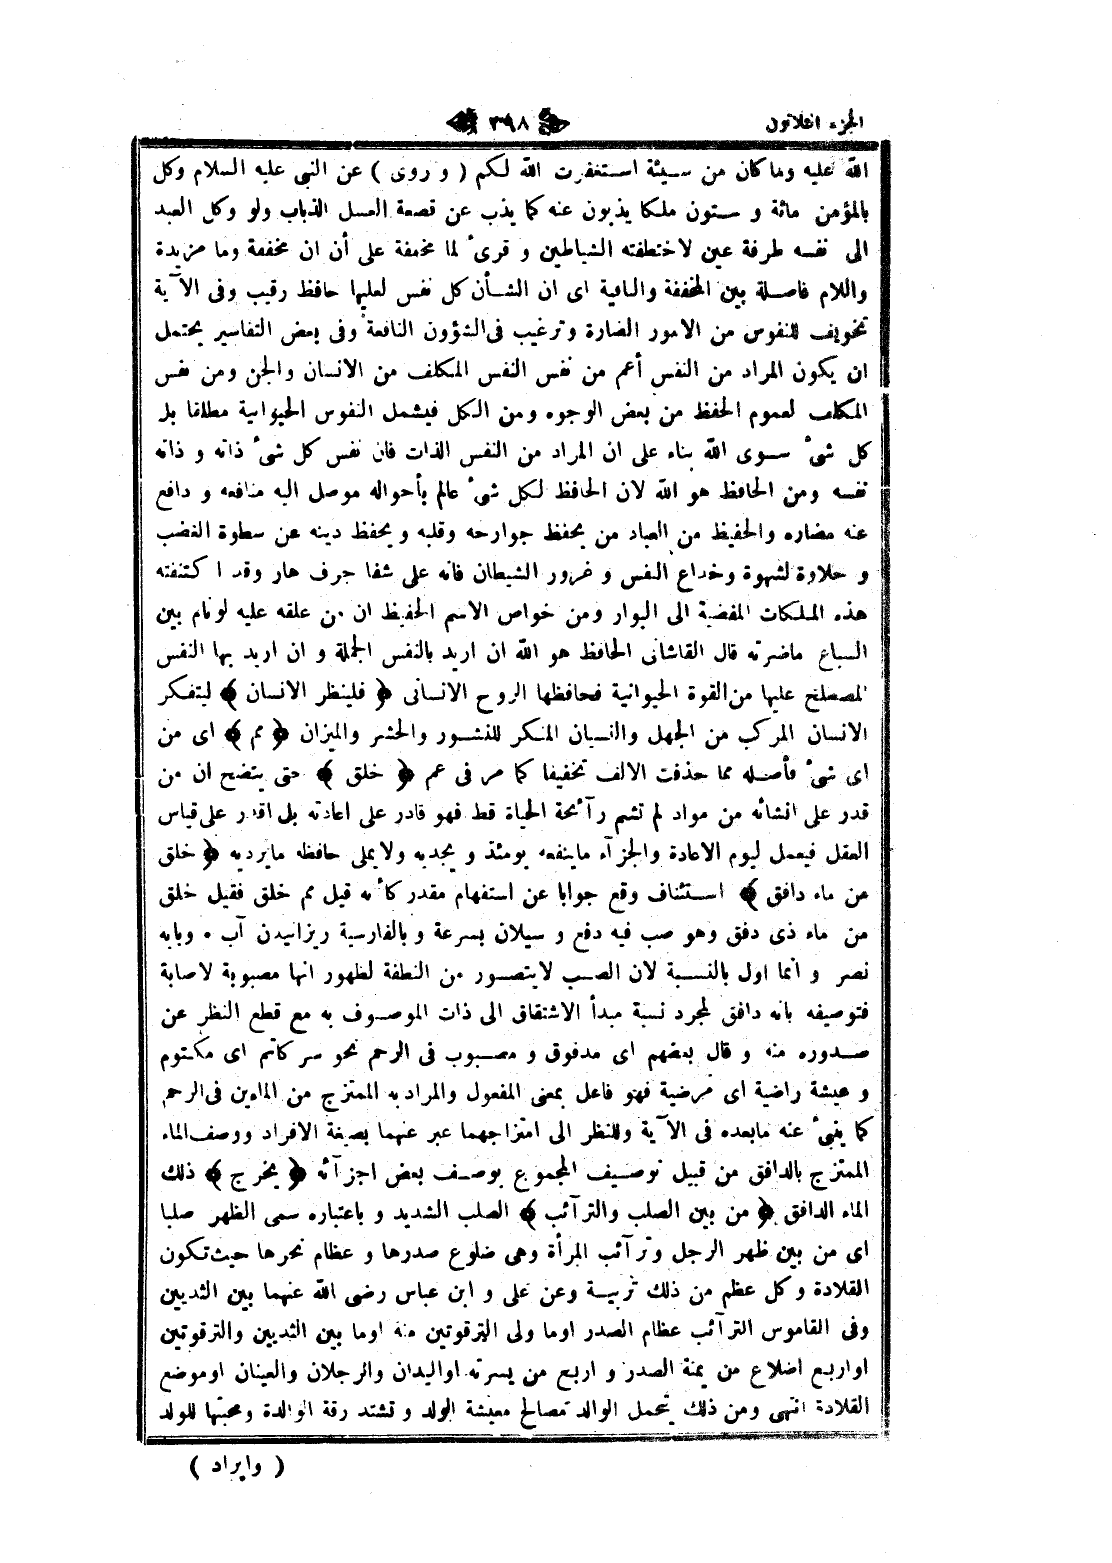 الجزء الثلاثون ٣٩٨
الله عليه وما كان من سيئة استغفرت الله لكم ( و روى ) عن النبى عليه السلام وكل
بالمؤمن مائة و ستون ملكا يذبون عنه كما يذب عن قصعة العسل الذباب ولو وكل العبد
الى نفسه طرفة عين لاختطفته الشياطين و قرئ لما مخففة على أن ان مخففة وما مزيدة
واللام فاصلة بين المخففة والنافية اى ان الشأن كل نفس لعليها حافظ رقيب وفى الآية
تخويف للنفوس من الامور الضارة وترغيب فى الشؤون النافعة وفى بعض التفاسير يحتمل
ان يكون المراد من النفس أعم من نفس النفس المكلف من الانسان والجن ومن نفس
المكلف لعموم الحفظ من بعض الوجوه ومن الكل فيشمل النفوس الحيوانية مطلقا بل
كل شئ سوى الله بناء على ان المراد من النفس الذات فان نفس كل شئ ذاته و ذاته
نفسه ومن الحافظ هو الله لان الحافظ لكل شئ عالم بأحواله موصل اليه منافعه و دافع
عنه مضاره والحفيظ من العباد من يحفظ جوارحه وقلبه و يحفظ دينه عن سطوة الغضب
و حلاوة لشهوة وخداع النفس و غرور الشيطان فانه على شفا جرف هار وقد ا كتنفته
هذه الملكات المفضية الى البوار ومن خواص الاسم الحفيظ ان من علقه عليه لو نام بين
السباع ماضرته قال القاشانى الحافظ هو الله ان اريد بالنفس الجملة و ان اريد بها النفس
المصطلح عليها من القوة الحيوانية فحافظها الروح الانسانى ﴿ فلينظر الانسان ﴾ ليتفكر
الانسان المركب من الجهل والنسيان المنكر للنشور والحشر والميزان ﴿ مم ﴾ اى من
اى شئ فأصله مما حذفت الالف تخفيفا كما مر فى عم ﴿ خلق ﴾ حتى يتضح ان من
قدر على انشائه من مواد لم تشم رآئحة الحياة قط فهو قادر على اعادته بل اقدر على قياس
العقل فيعمل ليوم الاعادة والجزآء ماينفعه يومئذ و يجديه ولايملى حافظه مايرديه ﴿ خلق
من ماء دافق ﴾ استئناف وقع جوابا عن استفهام مقدر كأنه قيل مم خلق فقيل خلق
من ماء ذى دفق وهو صب فيه دفع و سيلان بسرعة و بالفارسية ريزانيدن آب ٠ وبابه
نصر و انما اول بالنسبة لان الصب لايتصور من النطفة لظهور انها مصبوبة لاصابة
فتوصيفه بانه دافق لمجرد نسبة مبدأ الاشتقاق الى ذات الموصوف به مع قطع النظر عن
صدوره منه و قال بعضهم اى مدفوق و مصبوب فى الرحم نحو سر كاتم اى مكتوم
و عيشة راضية اى مرضية فهو فاعل بمعنى المفعول والمراد به الممتزج من الماءين فى الرحم
كما ينبئ عنه مابعده فى الآية وللنظر الى امتزاجهما عبر عنهما بصيغة الافراد ووصف الماء
الممتزج بالدافق من قبيل توصيف المجموع بوصف بعض اجزآئه ﴿ يخرج ﴾ ذلك
الماء الدافق ﴿ من بين الصلب والترآئب ﴾ الصلب الشديد و باعتباره سمى الظهر صلبا
اى من بين ظهر الرجل وترآئب المرأة وهى ضلوع صدرها و عظام نحرها حيث تكون
القلادة و كل عظم من ذلك تريبة وعن على و ابن عباس رضى الله عنهما بين الثديين
وفى القاموس الترآئب عظام الصدر اوما ولى الترقوتين منه اوما بين الثديين والترقوتين
اواربع اضلاع من يمنة الصدر و اربع من يسرته اواليدان والرجلان والعينان اوموضع
القلادة انتهى ومن ذلك يتحمل الوالد مصالح معيشة الولد و تشتد رقة الوالدة ومحبتها للولد
( وايراد )